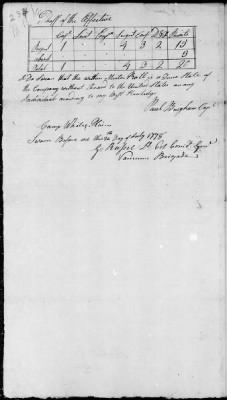 Proof of the Effective
Capt Lieut Ensn Sergts Corp D&F Privates
Present 1 " " 4 3 2 13
absent
Total 1 " " 4 3 2
I Do Swear that the within Muster Roll is a True State of
the Company without Fraud to the United States or any
Individual according to my Best Knowledge
Paul Brigham Capt
Camp White Plains
Sworn Before me this Day of July 1778
Lt Col Comd
Varnum Brigade